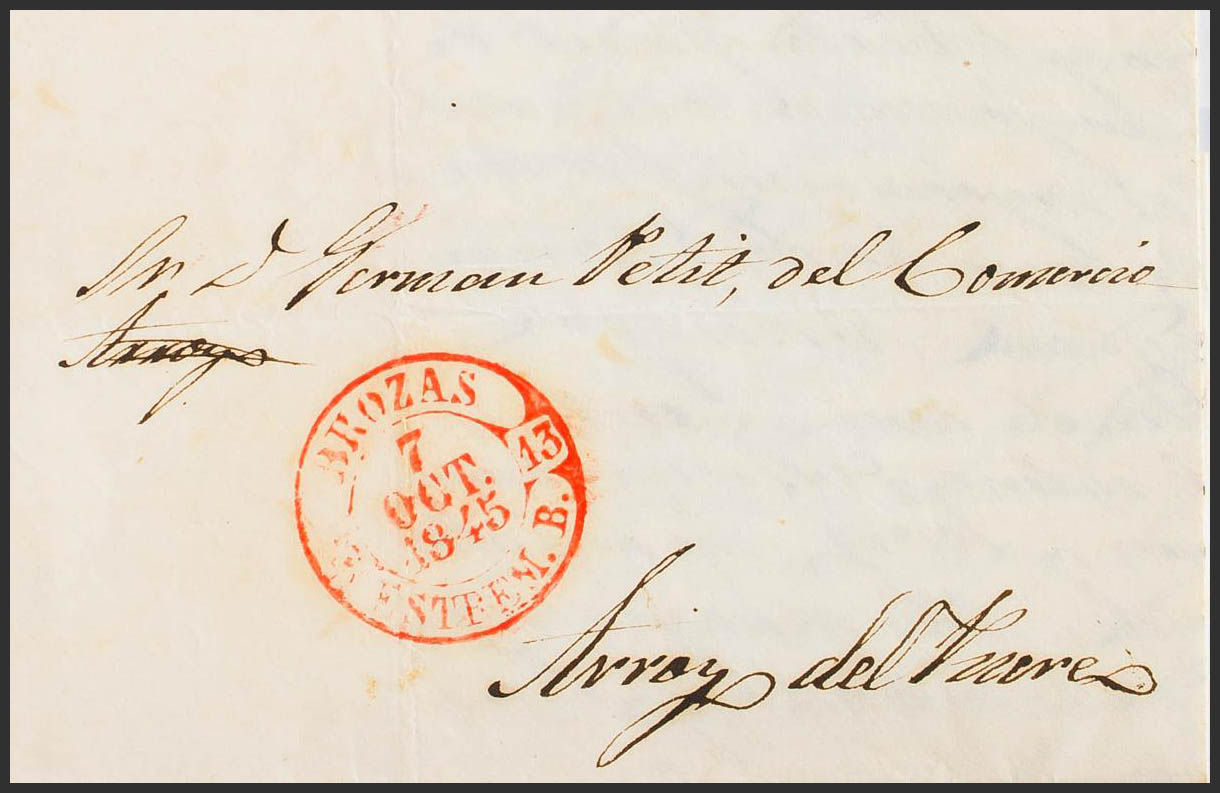 Sr D German Petit, del Comercio
Arroyo
BROZAS
13
7
OCT.
1845
ESTREM. B.
Arroyo del Puerco